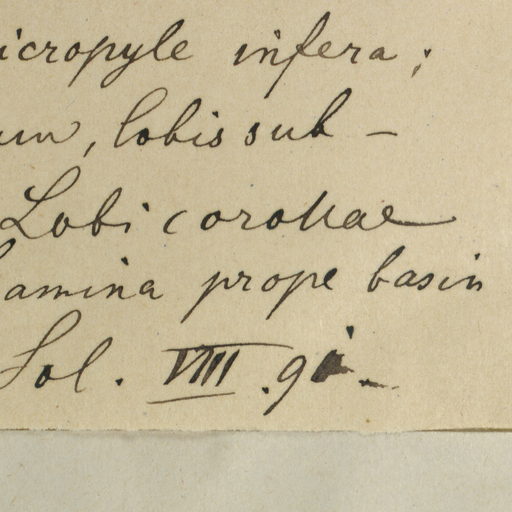 icropyle infera;
um, lobis sub-
Lobi corollae
lamina prope basin
Sol. VIII.